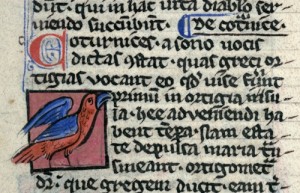 dunt. qui in hac uita diablo ser
uiendo succubunt. De coturnice.
Coturnices a sono uocis
dictas ↄstat. quas greci or
tigias uocant eo qd uise sunt
primum in ortigia insu
la. hec adueniendi ha
bent tempora. Nam esta
te depulsa maria trā
smeant. ortigomet
dr. que gregem ducit. eam